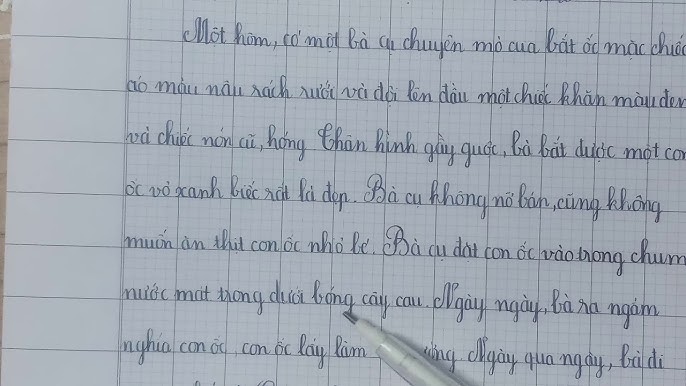 Một hôm, có một bà cụ chuyên mò cua bắt ốc mặc chiếc
áo màu nâu rách rưới và đội lên đầu một chiếc khăn màu đen
và chiếc nón cũ, hóng thân hình gầy guộc, bà bắt được một con
ốc vỏ xanh biếc rất là đẹp. Bà cụ không nỡ bán, cũng không
muốn ăn thịt con ốc nhỏ bé. Bà cụ đặt con ốc vào trong chum
nước mát trong dưới bóng cây cau. Ngày ngày, bà ra ngắm
nghía con ốc, con ốc lấy làm Ngày qua ngày, bà đi